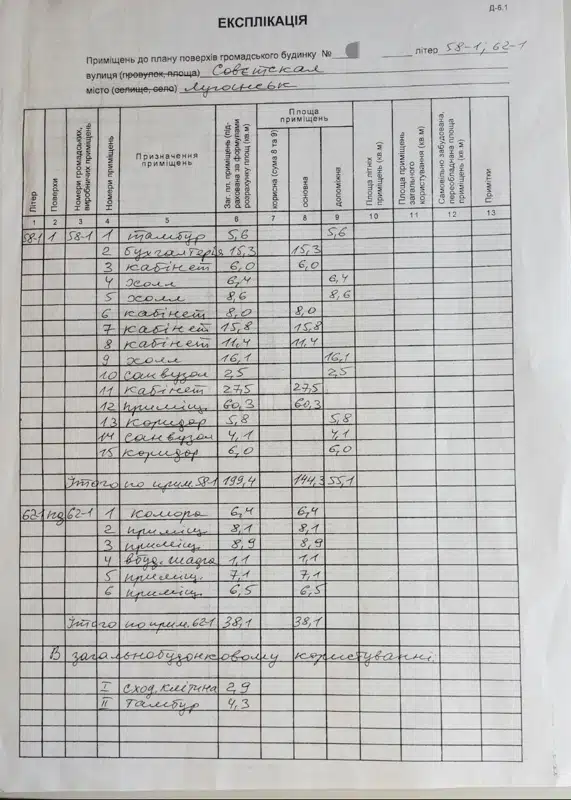 Д-6.1
ЕКСПЛІКАЦІЯ
Приміщень до плану поверхів громадського будинку № літер 58-1, 62-1
вулиця (провулок, площа) Совєтская
місто (селище, село) Луганськ
Літер Поверхи Номери громадських, виробничих приміщень Номери приміщень Призначення приміщень Заг. пл. приміщень (підрахована за формулами розрахунку площ (кв.м) Площа приміщень корисна (сума 8 та 9) основна допоміжна Площа літніх приміщень (кв.м) Площа приміщень загального користування (кв.м) Самовільно забудована, переобладнана площа приміщень (кв.м) Примітки
1 2 3 4 5 6 7 8 9 10 11 12 13
58-1 1 58-1 1 тамбур 5,6 5,6
2 бухгалтерія 15,3 15,3
3 кабінет 6,0 6,0
4 холл 6,4 6,4
5 холл 8,6 8,6
6 кабінет 8,0 8,0
7 кабінет 15,8 15,8
8 кабінет 11,4 11,4
9 холл 16,1 16,1
10 санвузол 2,5 2,5
11 кабінет 27,5 27,5
12 приміщ. 60,3 60,3
13 коридор 5,8 5,8
14 санвузол 4,1 4,1
15 коридор 6,0 6,0
Итого по прим. 58-1 199,4 144,3 55,1
62-1 пд 62-1 1 комора 6,4 6,4
2 приміщ. 8,1 8,1
3 приміщ. 8,9 8,9
4 вбуд. шафа 1,1 1,1
5 приміщ. 7,1 7,1
6 приміщ. 6,5 6,5
Итого по прим. 62-1 38,1 38,1
В загальнобудинковому користуванні
I сход. клітина 2,9
II тамбур 4,3